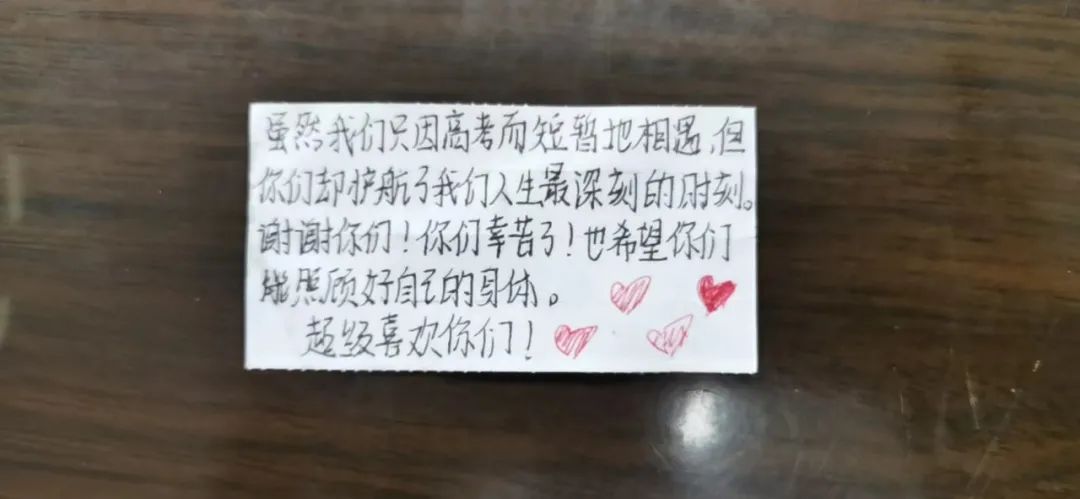 虽然我们只因高考而短暂地相遇,但
你们却护航了我们人生最深刻的时刻。
谢谢你们!你们辛苦了!也希望你们
能照顾好自己的身体。
超级喜欢你们!